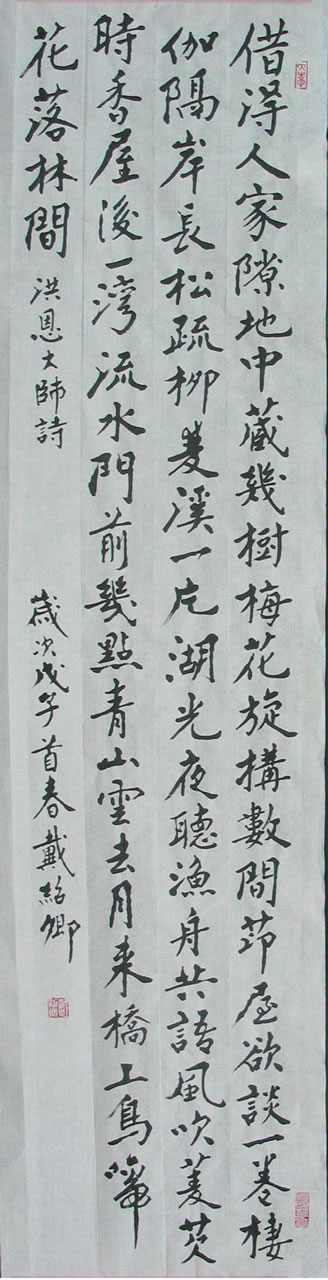 借得人家隙地中藏幾樹梅花旋構數間茆屋欲談一卷棲
伽隔岸長松疏柳夐溪一片湖光夜聽漁舟共語風吹菱芡
時香屋後一灣流水門前幾點青山雲去月来橋上鳥啼
花落林間
洪恩大師詩
歲次戊子首春戴紹卿